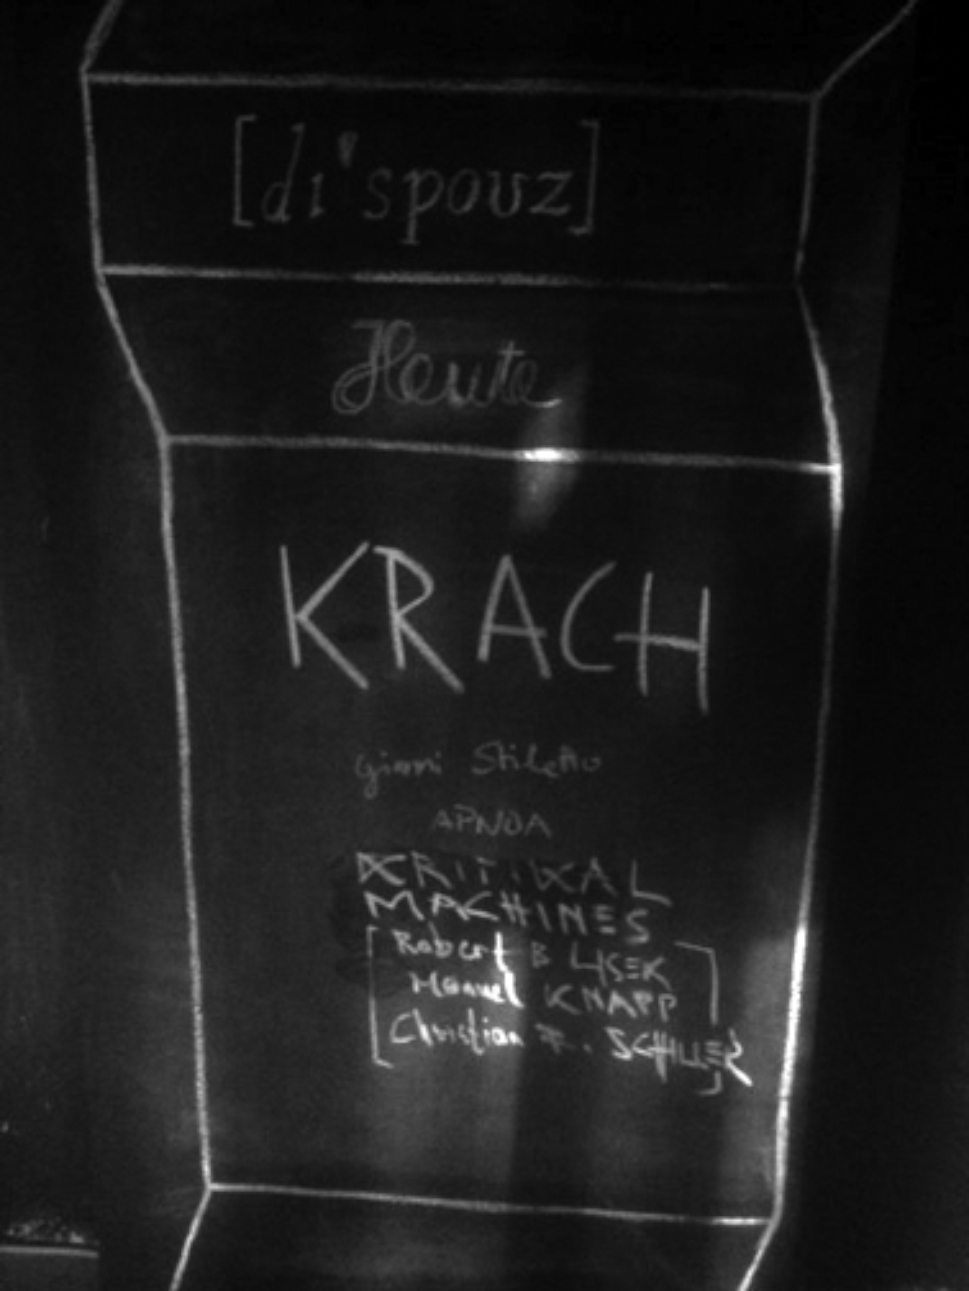 [di'spouz]
Heute
KRACH
Gianni Stiletto
APNOA
KRITIKAL
MACHINES
[Robert B LISEK
Manuel KNAPP
Christian F. SCHILLER]